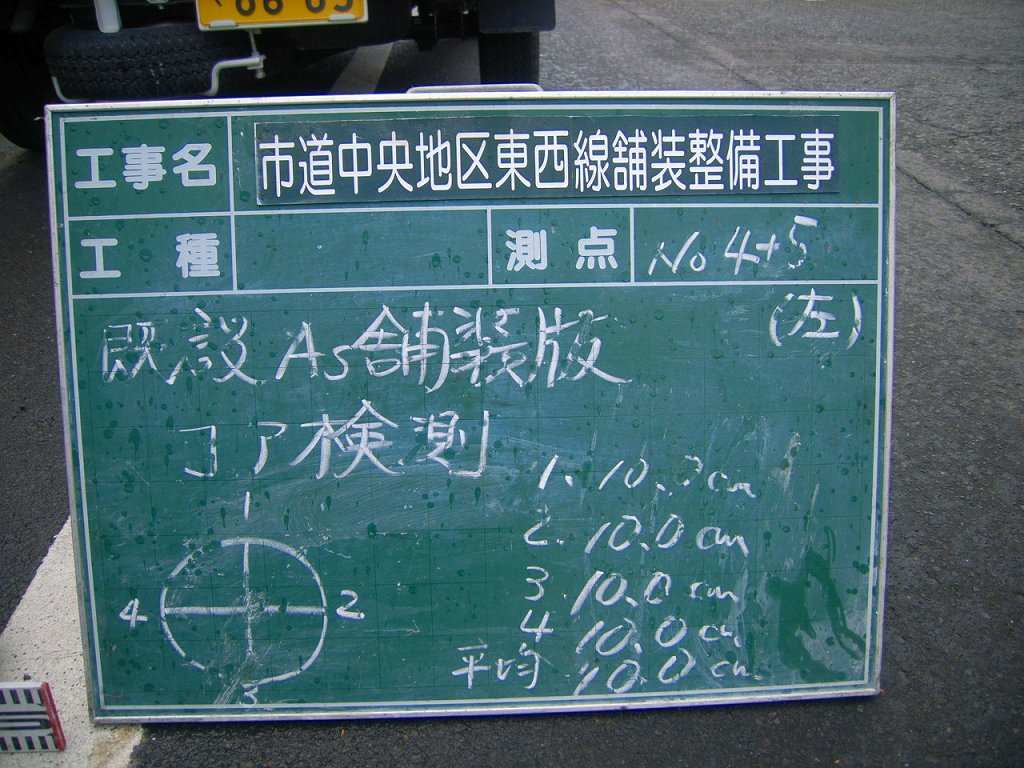 工事名 市道中央地区東西線舗装整備工事
工種 測点 No 4+5
(左)
既設As舗装版
コア検測
1
4 2
3
1. 10.0cm
2. 10.0cm
3. 10.0cm
4 10.0cm
平均 10.0cm